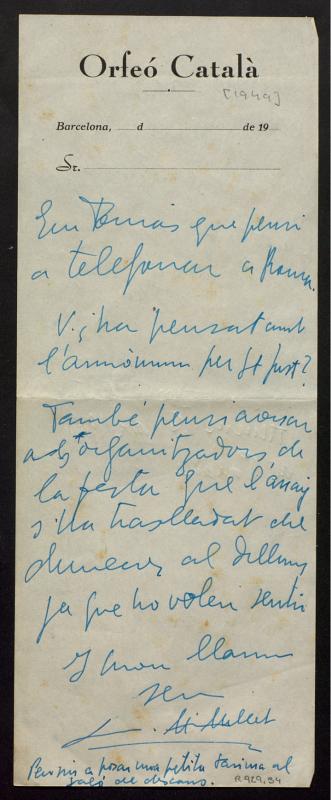 Orfeó Català
[1949]
Barcelona, d de 19
Sr.
Em Tomás que pensi
a telefonar a Roma.
V. ¿ha pensat amb
l'armònium per St Just?
També pensi avisar
als organitzadors de
la festa que l'assaig
s'ha traslladat de
dimecres al dilluns
ja que ho volen sentir
I bon
seu
L. M. Millet
Pensin a posar una petita tarima al
saló de descans.
R929.94